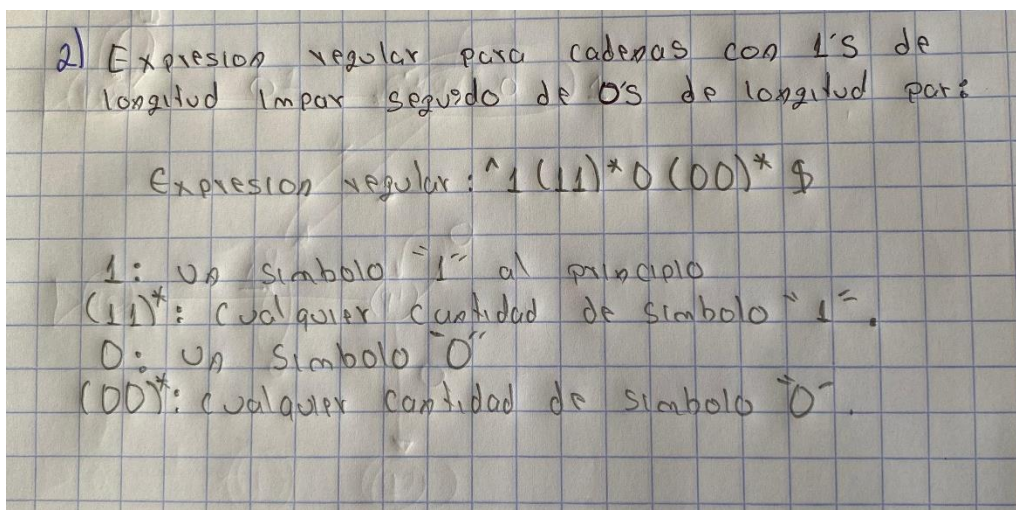 2) Expresion regular para cadenas con 1's de
longitud Impar seguido de 0's de longitud par:
Expresion regular: ^1(11)*0(00)*$
1: un simbolo "1" al principio
(11)*: cualquier cantidad de simbolo "1".
0: un simbolo "0"
(00)*: cualquier cantidad de simbolo "0".